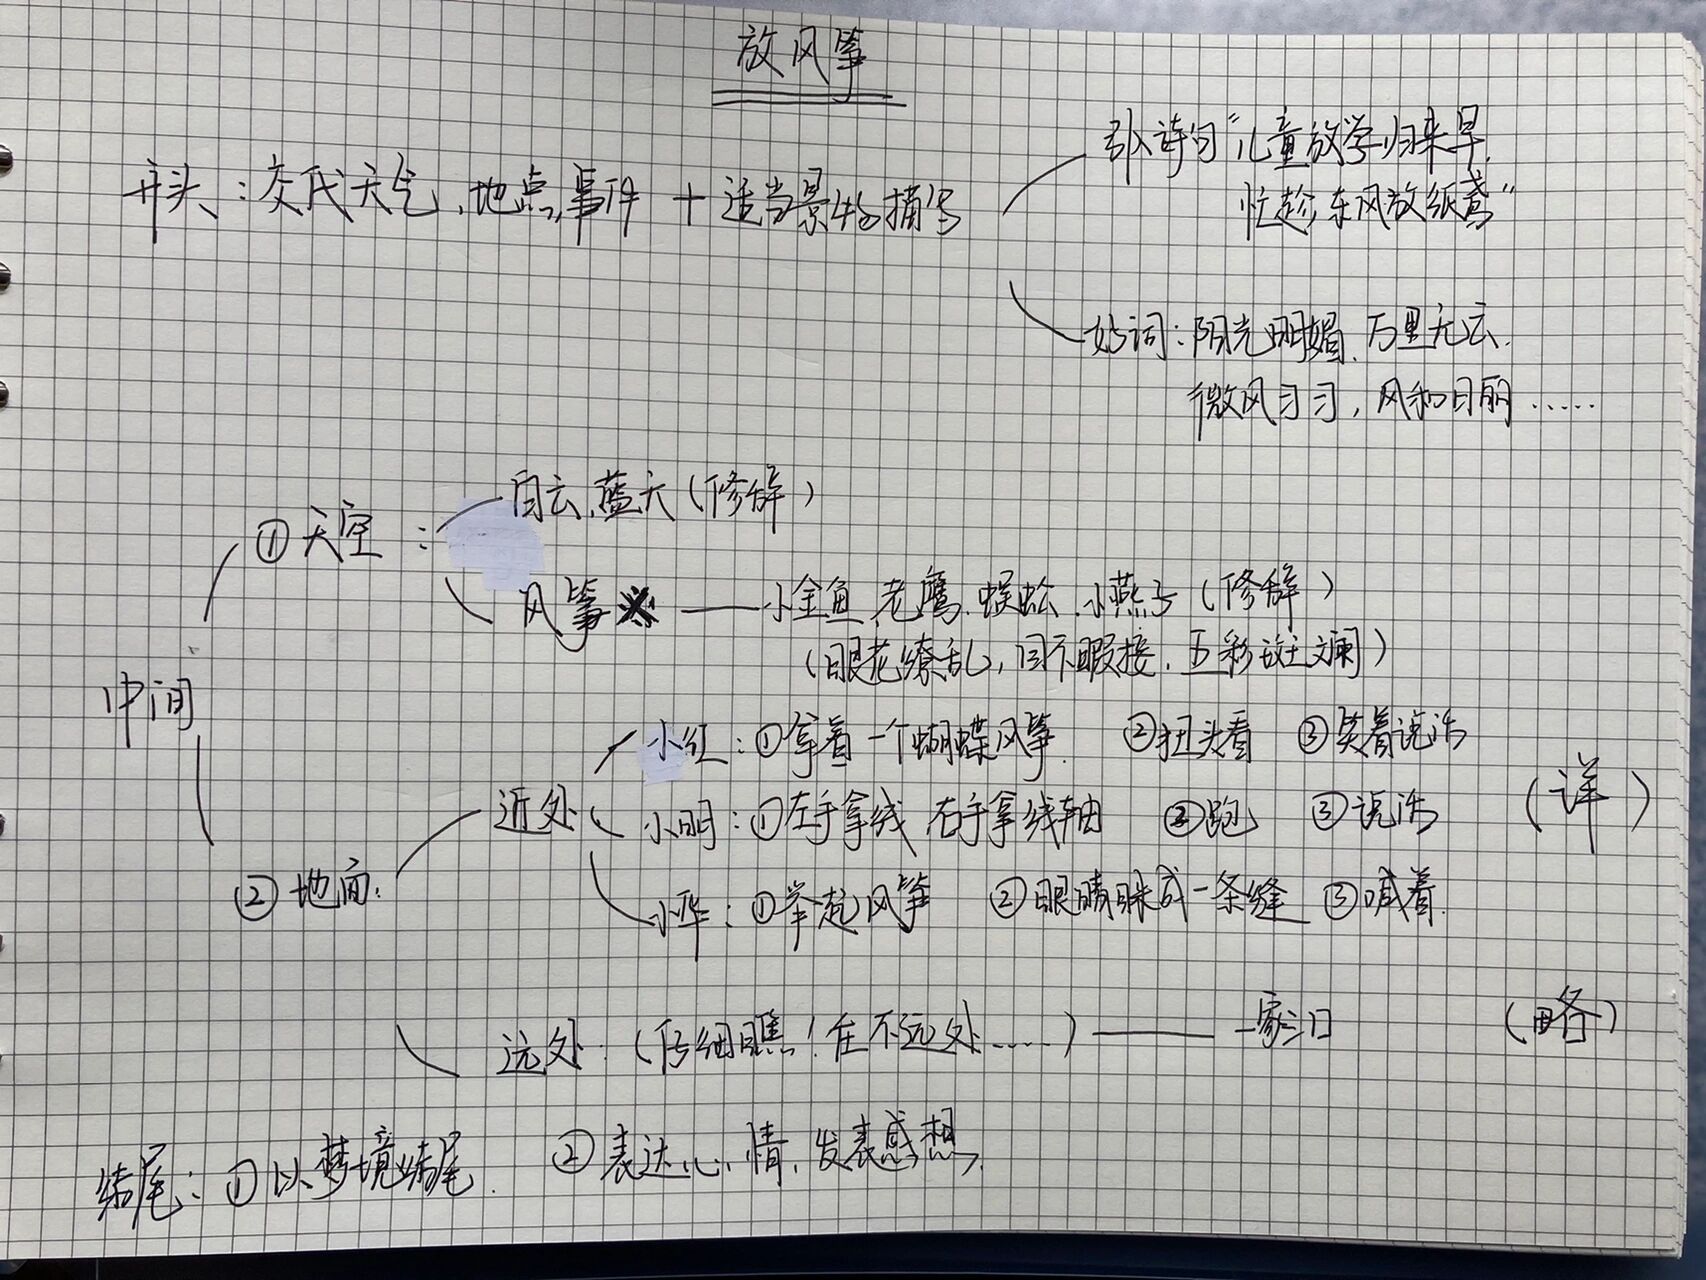 放风筝
开头：交代天气、地点、事件 + 适当景物描写
引诗句“儿童放学归来早，
忙趁东风放纸鸢”
好词：阳光明媚、万里无云、
微风习习，风和日丽……
中间
①天空：
白云、蓝天（修辞）
风筝※ —— 小金鱼、老鹰、蜈蚣、小燕子（修辞）
（眼花缭乱，目不暇接、五彩斑斓）
②地面：
近处
小红：①拿着一个蝴蝶风筝 ②扭头看 ③笑着说话
小明：①左手拿线 右手拿线轴 ②跑 ③说话
（详）
小华：①举起风筝 ②眼睛眯成一条缝 ③喊着
远处：（仔细瞧！在不远处……）—— 一家三口 （略）
结尾：①以梦境结尾 ②表达心情，发表感想